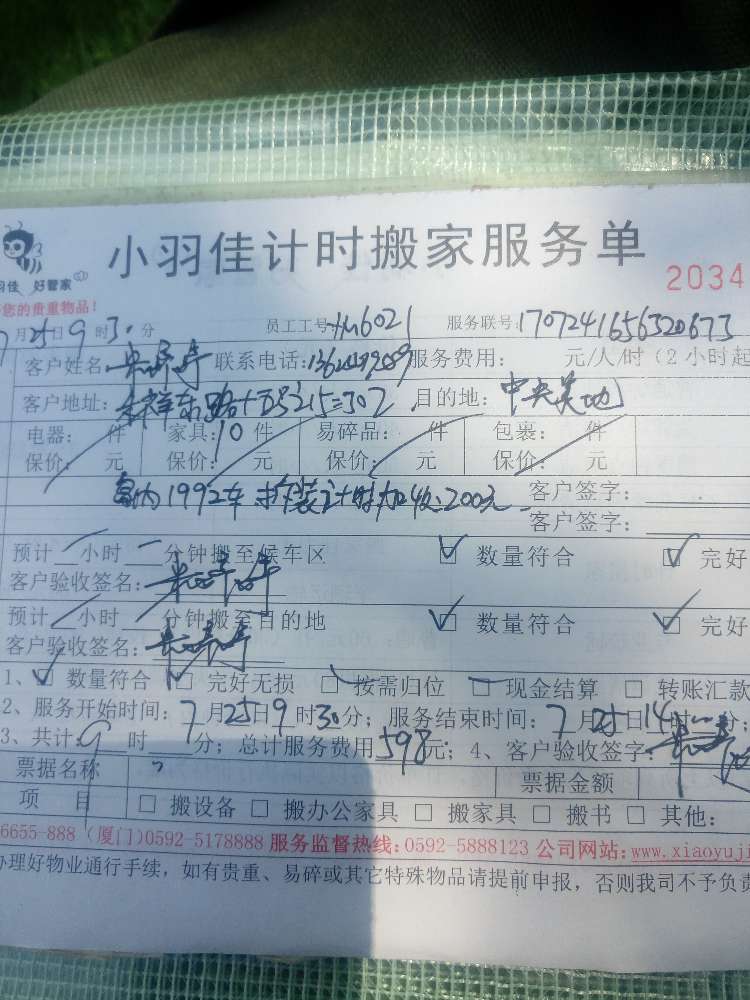 小羽佳计时搬家服务单
羽佳 好管家
2034
您的贵重物品!
7月25日9时30分 员工工号: 服务联号:1707241656320673
客户姓名: 联系电话: 服务费用: 元/人/时(2小时起
客户地址: 目的地:中央美地
电器: 件 家具:10件 易碎品: 件 包裹: 件
保价: 元 保价: 元 保价: 元 保价: 元
1992车拆装计时加收200元 客户签字:
客户签字:
预计 小时 分钟搬至候车区 数量符合 完好
客户验收签名:
预计 小时 分钟搬至目的地 数量符合 完好
客户验收签名:
1、 数量符合 完好无损 按需归位 现金结算 转账汇款
2、服务开始时间:7月25日9时30分;服务结束时间:7月25日14时 分;
3、共计: 时 分;总计服务费用598元;4、客户验收签字:
票据名称 票据金额
项 目 搬设备 搬办公家具 搬家具 搬书 其他:
6655-888(厦门)0592-5178888 服务监督热线:0592-5888123 公司网站:www.xiaoyuji
办理好物业通行手续,如有贵重、易碎或其它特殊物品请提前申报,否则我司不予负责